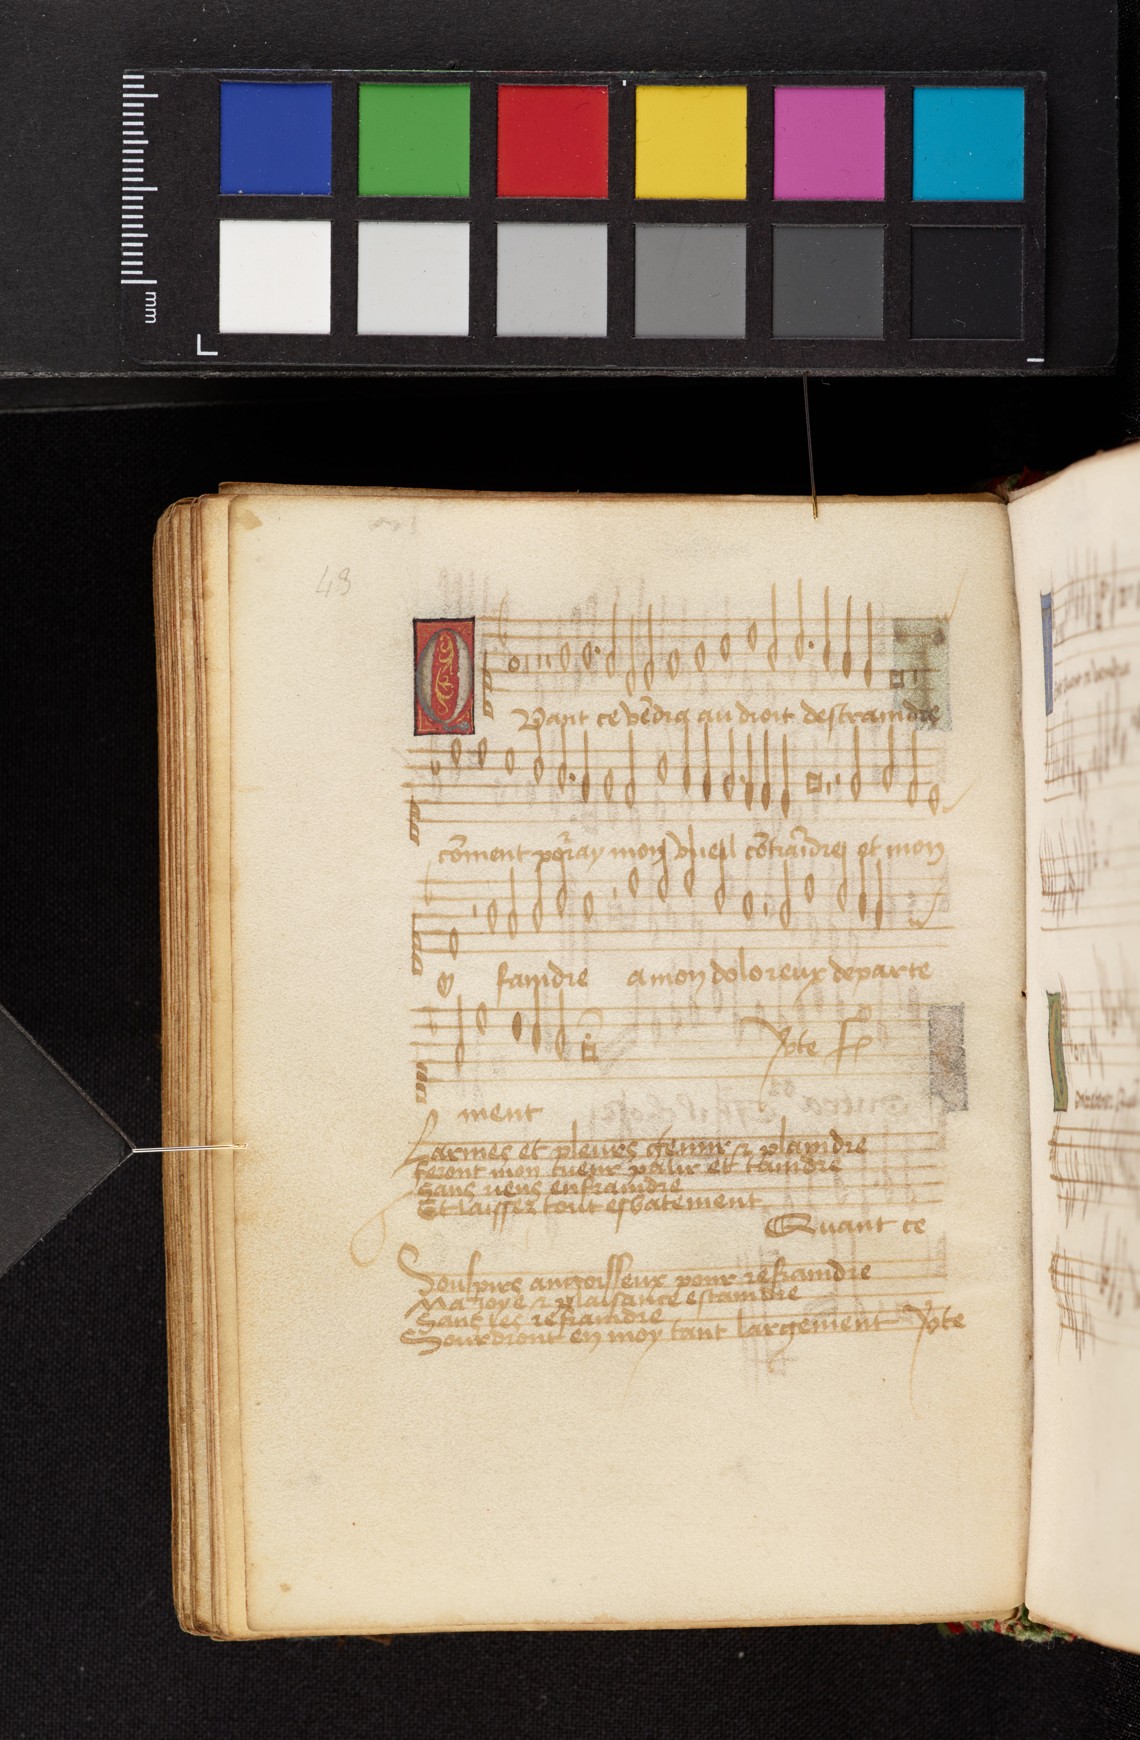 mm
48
Quant ce vẽdra au droit destraindre
cõment põray mon vueil cõtraĩdre et mon
faindre a mon doloreux departe
ment
Larmes et pleurs gemir et plaindre
feront mon cueur palir et taindre
Sans riens enfraindre
Et laissez tout esbatement
Quant ce
Souspirs angoisseux pour refraindre
Ma joye et plaisance estaindre
Sans les refraindre
Sourdront en moy tant largement